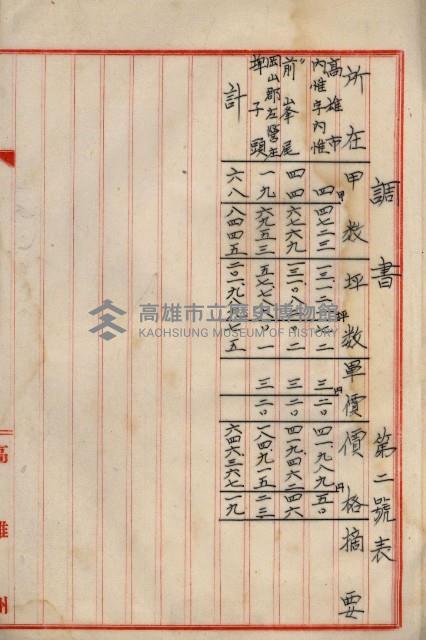 調書 第二號表
所在 甲数 坪数 單價 價格 摘要
高雄市內惟字內惟 四四七二三 一三一二一七二 三二〇 四一九八九五〇
甲 坪 円 円
〃 前峯尾 四四六七六九 一三一〇八二〇二 三二〇 四一九四六二四六
岡山郡左營庄埤子頭 一九六九五三 五七七八六〇一 三二〇 一八四九一五二三
計 六八八四四五 二〇一九八九七五 六四六三六七一九
高雄州
高雄市立歷史博物館
KAOHSIUNG MUSEUM OF HISTORY